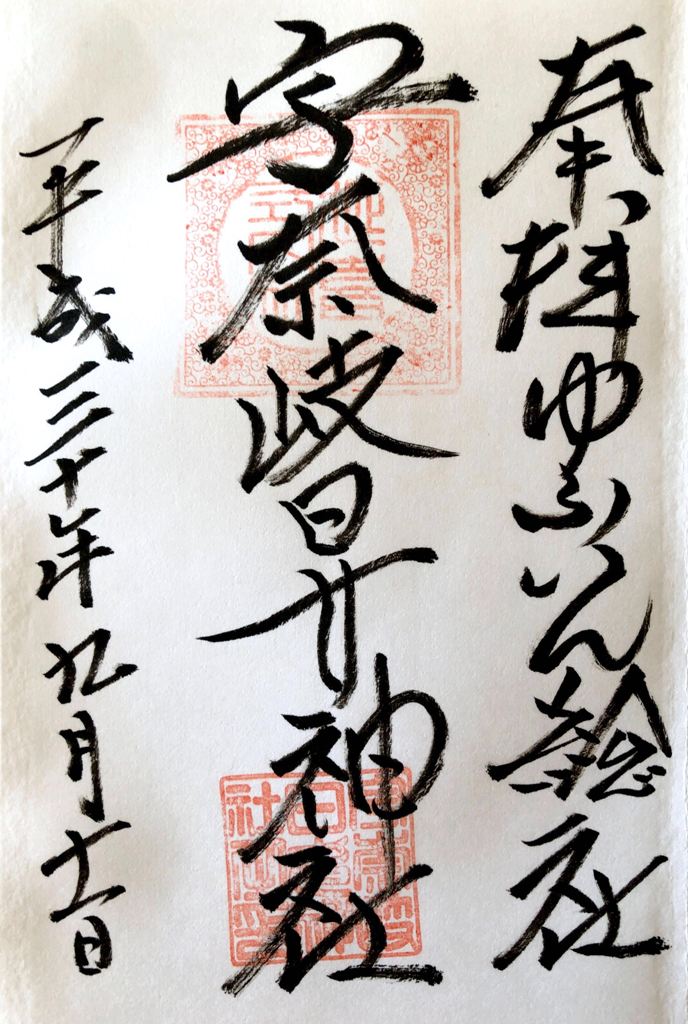 奉拝 ゆふいん総社
宇奈岐日女神社
平成三十年九月十一日